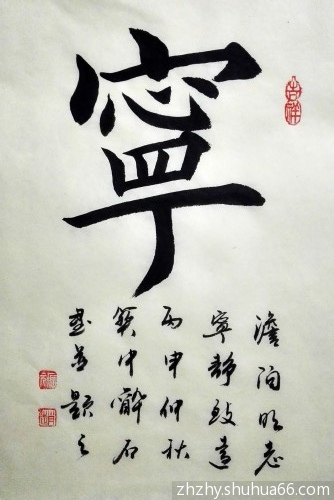 寧
吉祥
澹泊明志
寧靜致遠
丙申仲秋
醉石
題之
zhzhy.shuhua66.com